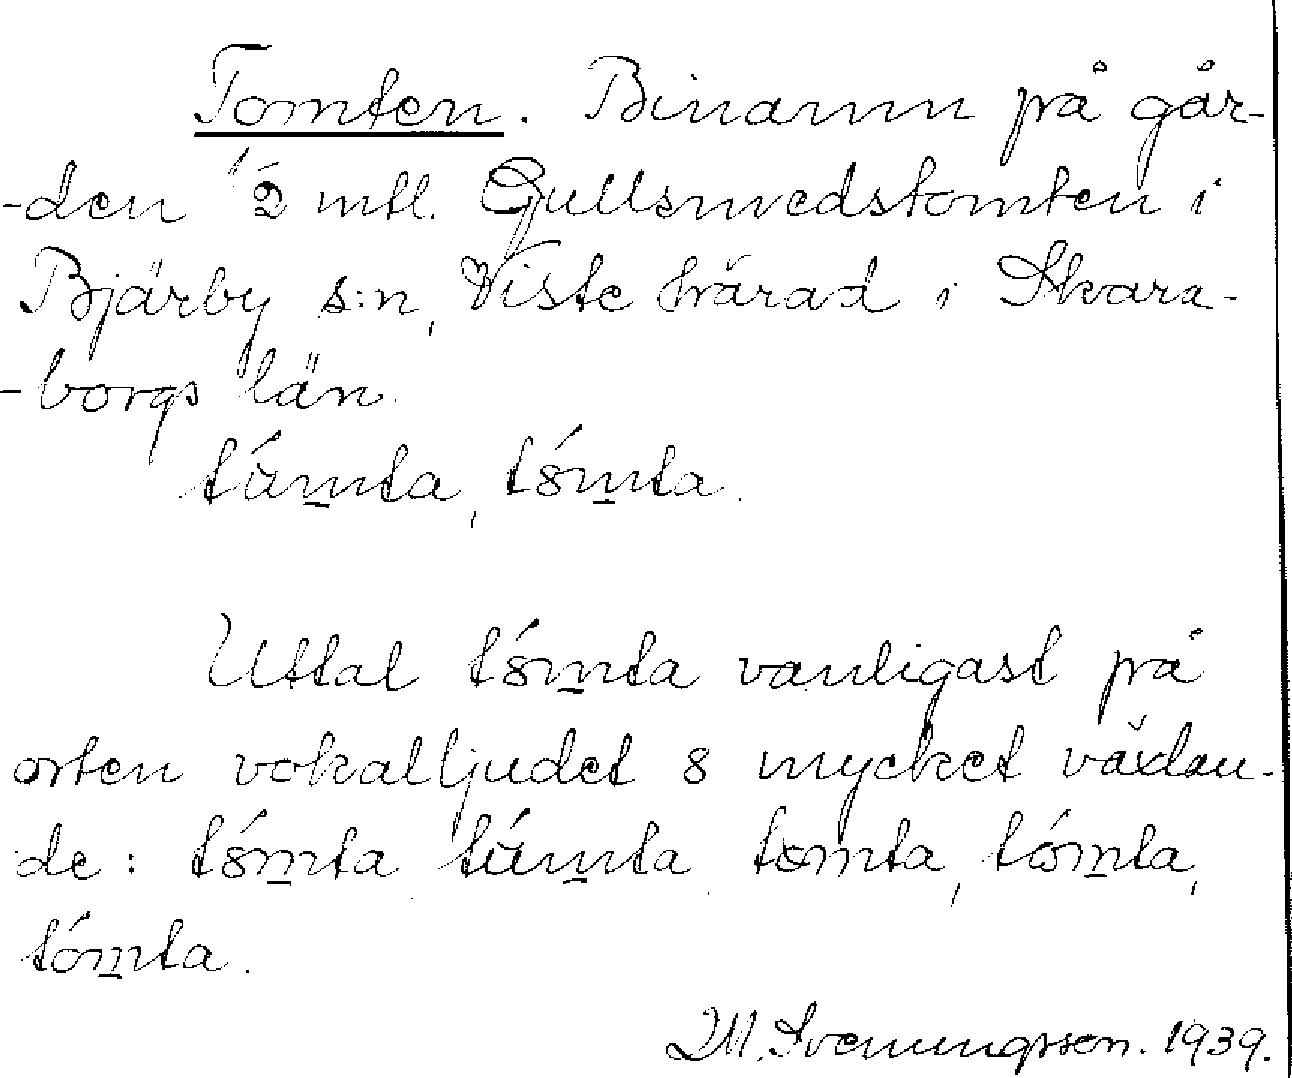 Tomten. Binamn på går-
-den 1/2 mtl. Gullsmedstomten i
Bjärby s:n, Viste härad i Skara-
-borgs län.
tú̈m̲ta, tȣ́m̲ta.
Uttal tȣ́m̲ta vanligast på
orten vokalljudet ȣ mycket växlan-
de: tȣ́m̲ta tú̈m̲ta, tomta, tóm̲ta,
tóm̲ta.
M. Svenungsson. 1939.